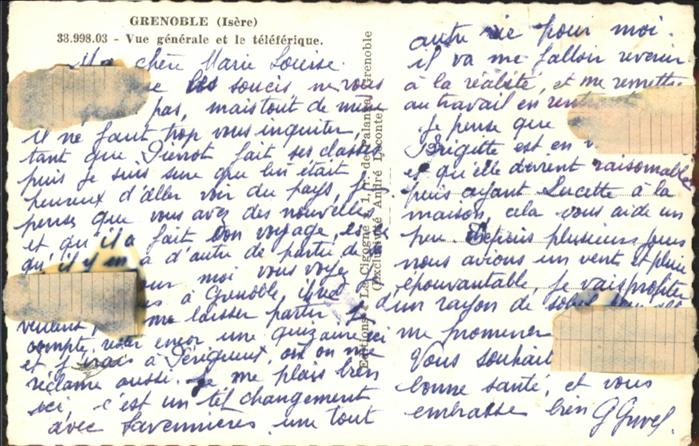 GRENOBLE (Isère)
38.998.03 - Vue générale et le téléférique.
Ma chère Marie Louise.
les soucis ne vous
pas, mais tout de même
il ne faut trop vous inquiéter
tant que Pierrot fait ses classes
puis je suis sure que lui était
heureux d'aller voir du pays, je
pense que vous avez des nouvelles
et qu'il a fait bon voyage, et
qu'il y en a d'autre de partie de
pour moi vous voyez
à Grenoble
veulent me laisser partir, je
compte, rester encor une quinzaine ici
et j'irais à Périgueux, où on me
réclame aussi. Je me plais bien
ici, c'est un tel changement
avec Savennières, une tout
Editions " La Cigogne "
Exclusivité André Leconte
Grenoble
autre vie pour moi.
il va me falloir revenir
à la réalité, et me remettre
au travail en
Je pense que
Brigitte est en
et qu'elle devient raisonnable
puis ayant Lucette à la
maison, cela vous aide un
peu. Depuis plusieurs jours
nous avions un vent et pluie
épouvantable, je vais profiter
d'un rayon de soleil
me promener
Vous souhait
bonne santé, et vous
embrasse bien